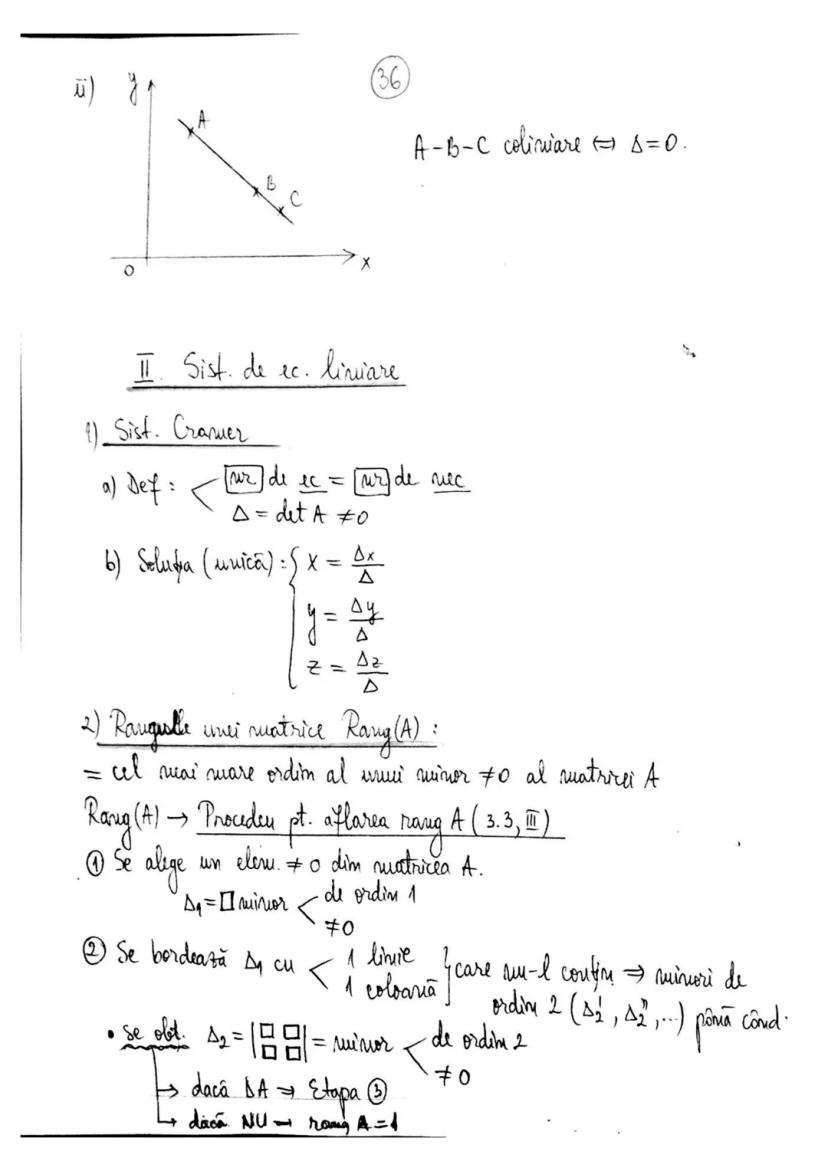 36
ii) y
A
B
C
O x
A-B-C coliniare ⇔ Δ=0.
II. Sist. de ec. liniare
1) Sist. Cramer
a) Def: nr de ec = nr de nec
Δ = det A ≠0
b) Soluția (unică): x = Δx/Δ
y = Δy/Δ
z = Δz/Δ
2) Rangul unei matrice Rang(A):
= cel mai mare ordin al unui minor ≠0 al matricei A
Rang(A) → Procedeu pt. aflarea rang A (3.3, III)
① Se alege un elem. ≠0 din matricea A.
Δ1=□ minor < de ordin 1
≠0
② Se bordează Δ1 cu < 1 linie
1 coloană } care nu-l conțin ⇒ minori de
ordin 2 (Δ2', Δ2'',...) până când.
• se obț. Δ2 = |□ □ □ □| = minor < de ordin 2
≠0
→ dacă DA ⇒ Etapa ③
→ dacă NU → rang A=1